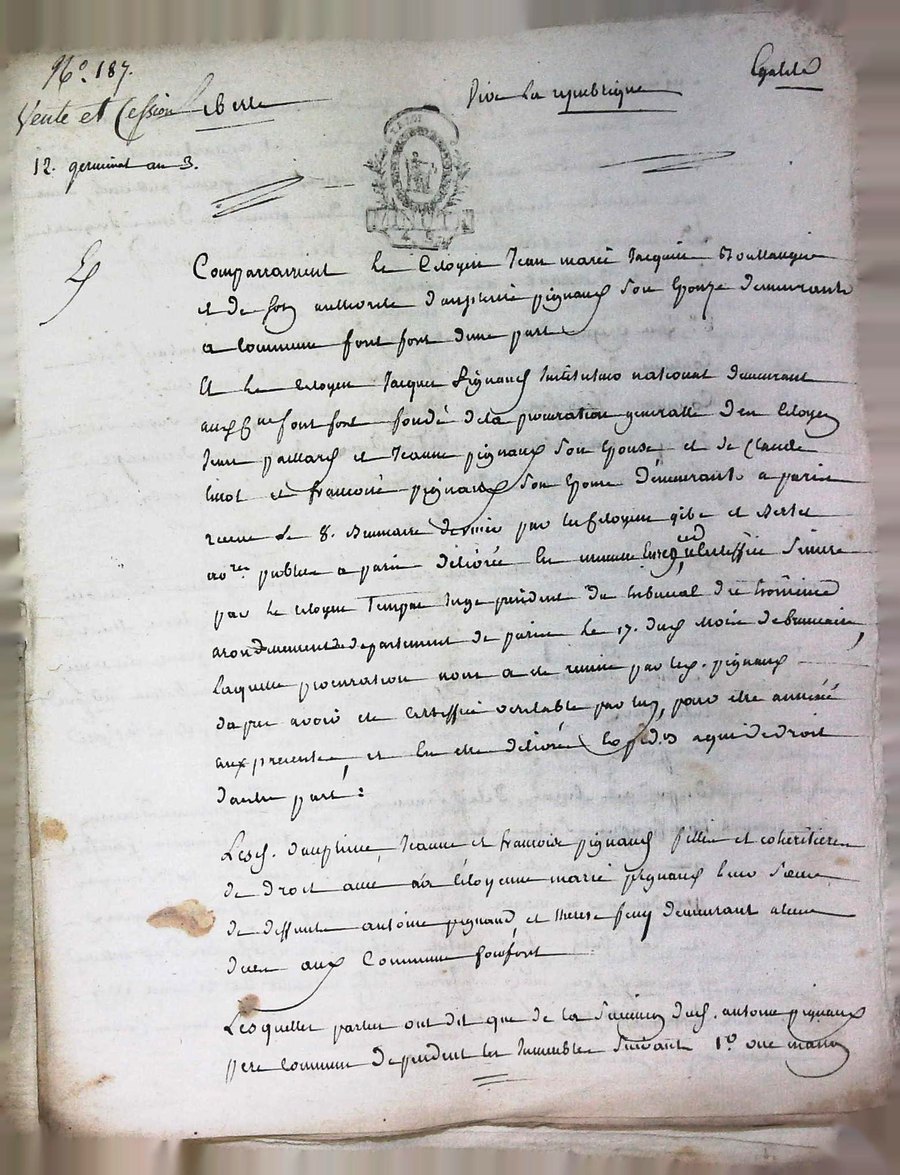 No. 187.
Vente et Cession Liberté
Vive La republique
Egalité
12. germinal an 3.
LA LOI
Comparraisent le Citoyen Jean marie Jacquin Boullangé
et de son authorité dauphine pignaud Son Epouze demeurants
a Commune font fort d'une part
Et le Citoyen Jacques Pignaud Instituteur national demeurant
aud. font fort fondé de la procuration generalle d'en Citoyen
Jean paillard et Jeanne pignaud Son Epouse, et de Claude
et francoise pignaud Son Epouse demeurants a paris
recue le 8. Brumaire dernier par les Citoyens gibe et
no.res publics a paris délivrée en minutte Enreg.
par le Citoyen Juge president du tribunal du troisieme
arondissement de departement de paris le 17. dud. Mois de brumaire,
laquelle procuration nous a été remise par led. pignaud
dapres avoir été Certiffiée veritable par luy, pour être annexée
aux presentes, et En etre délivrée Expéd.on a qui de droit
dautre part:
Lesd. dauphine, Jeanne et francoise pignaud filles et coheritieres
de droit avec la Citoyenne marie pignaud leur Sœur
de deffunts antoine pignaud et therese demeurant
aud. Commune
Lesquelles parties ont dit que de la Succession dud. antoine pignaud
pere commun dependent les Immeubles Suivants 1.o une maison